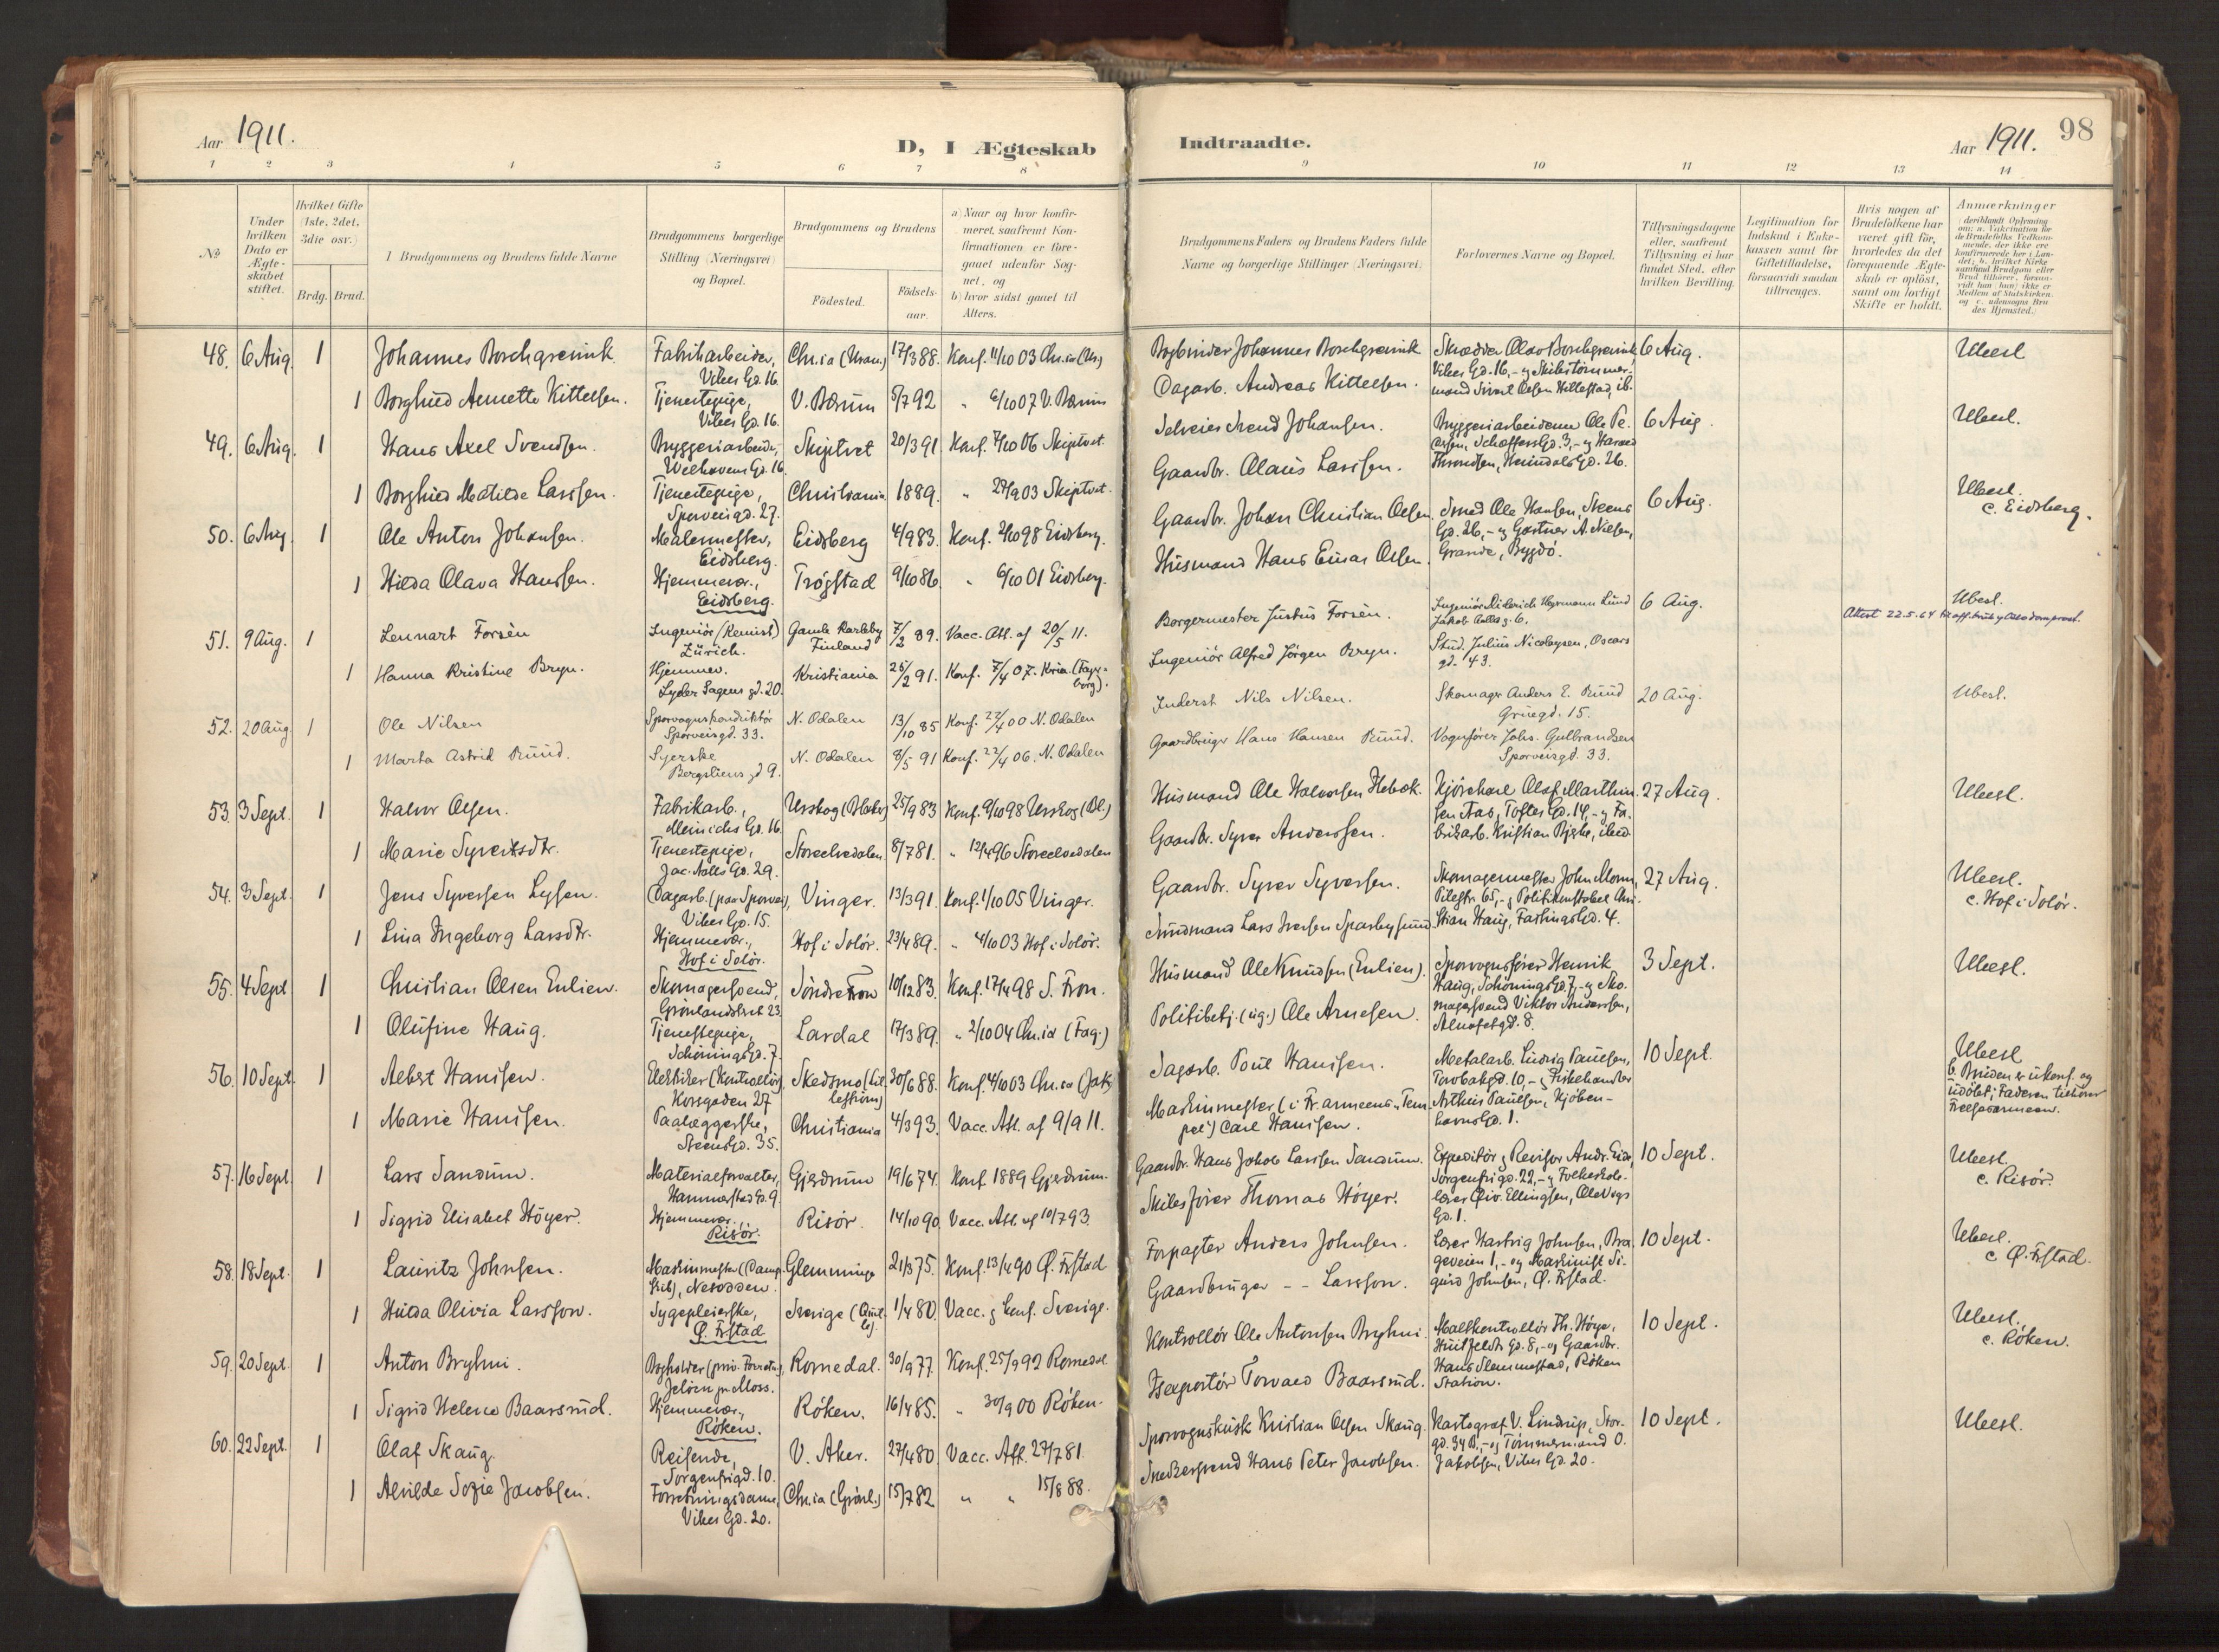 Aar 1911.
D, I Ægteskab
Indtraadte.
Aar 1911.
98
1 2 3 4 5 6 7 8
9 10 11 12 13 14
№
Under hvilken Dato er Ægteskabet stiftet.
Hvilket Gifte (1ste, 2det, 3die osv.)
Brdg. Brud.
Brudgommens og Brudens fulde Navne
Brudgommens borgerlige Stilling (Næringsvei) og Bopæl.
Brudgommens og Brudens
Födested.
Födsels-aar.
a) Naar og hvor konfir-
meret, saafremt Kon-
firmationen er fore-
gaaet udenfor Sog-
net, og
b) hvor sidst gaaet til
Alters.
Brudgommens Faders og Brudens Faders fulde
Navne og borgerlige Stillinger (Næringsvei)
Forlovernes Navne og Bopæl.
Tillysningsdagene
eller, saafremt
Tillysning ei har
fundet Sted, efter
hvilken Bevilling.
Legitimation for
Indskud i Enke-
kassen samt for
Giftetilladelse,
forsaavidt saadan
tiltrænges.
Hvis nogen af
Brudefolkene har
været gift för,
hvorledes da det
foregaaende Ægte-
skab er oplöst,
samt om lovligt
Skifte er holdt.
Anmærkninger
48. 6 Aug. 1 Johannes Borchgrevink Fabrikarbeider, Vibes Gd. 16. Chr.ia (Uran.) 17/3 88. Konf. 11/10 03 Chr.ia (Ur.) Bogbinder Johannes Borchgrevink Skrædder Olav Borchgrevink, Vibes Gd. 16, - og Skibstømmermand 6 Aug. Ubesl.
1 Borghild Annette Kittelsen. Tjenestepige, Vibes Gd. 16. V. Bærum 5/7 92 " 6/10 07 V. Bærum Dagarb. Andreas Kittelsen.
49. 6 Aug. 1 Hans Axel Svendsen. Bryggeriarbeider, Welhavens Gd. 16. Skiptvet 20/3 91. Konf. 7/10 06 Skiptvet. Selveier Svend Johansen. Bryggeriarbeiderne Ole Pedersen, Schæffers Gd. 3, - og Harald Throndsen, Heimdals Gd. 26. 6 Aug. Ubesl.
1 Borghild Matilde Larssen. Tjenestepige, Sporveisgd. 27. Christiania 1889. " 27/9 03 Skiptvet. Gaardbr. Olaus Larssen.
50. 6 Aug. 1 Ole Anton Johansen. Malermester, Eidsberg. Eidsberg 4/9 83. Konf. 2/10 98 Eidsberg. Gaardbr. Johan Christian Olsen. Smed Ole Hansen, Steens Gd. 26, - og Gartner A. Nilsen, Grande, Bygdö. 6 Aug. Ubesl. c. Eidsberg.
1 Hilda Olava Hanssen. Hjemmevær., Eidsberg. Trögstad 9/10 86. " 6/10 01 Eidsberg. Husmand Hans Einar Olsen.
51. 9 Aug. 1 Lennart Forsèn Ingeniör (Kemist) Zürich. Gamle Karleby Finland 7/2 89. Vacc. Att. af 20/5 11. Borgermester Justus Forsèn. Ingeniör Diderich Hegermann Lund Jakob Aallsg. 6. 6 Aug. Ubesl.
Attest 22.5.64
1 Hanna Kristine Bryn. Hjemmev. Lyder Sagens gd. 20. Kristiania 25/2 91. Konf. 7/4 07. Kria. (Fagerborg). Ingeniör Alfred Jörgen Bryn. Stud. Julius Nicolaysen, Oscars gd. 43.
52. 20 Aug. 1 Ole Nilsen Sporvognskonduktör Sporveisgd. 33. N. Odalen 13/10 85 Konf. 22/4 00 N. Odalen Inderst Nils Nilsen. Skomager Anders E. Ruud Grüegd. 15. 20 Aug. Ubesl.
1 Marta Astrid Ruud. Syerske Bergsliens gd 9. N. Odalen 8/5 91 Konf. 22/4 06. N. Odalen Gaardbruger Hans Hansen Ruud. Vognförer Johs. Gulbrandsen Sporveisgd. 33.
53. 3 Sept. 1 Halvor Olsen. Fabrikarb., Meinichs Gd. 16. Urskog (Blaker) 25/9 83 Konf. 9/10 98 Urskog (Bl.) Husmand Ole Halvorsen Kjörekarl Olaf Marthinsen Aas, Toftes Gd. 14, - og Fabrikarb. Kristian 27 Aug. Ubesl.
1 Marie Syversdtr. Tjenestepige, Jac. Aalls Gd. 29. Storelvedalen 8/7 81. " 12/4 96 Storelvedalen Gaardbr. Syver Anderssen.
54. 3 Sept. 1 Jens Syversen Dagarb. (paa Sporvei), Vibes Gd. 15. Vinger. 13/3 91. Konf. 1/10 05 Vinger. Gaardbr. Syver Syversen. Skomagermester John Moen, Pilestr. 65, - og Politikonstabel Christian Haug, Fastings Gd. 4. 27 Aug. Ubesl. c. Hof i Solör.
1 Lina Ingeborg Larsdtr. Hjemmevær., Hof i Solör. Hof i Solör. 23/4 89. " 4/10 03 Hof i Solör. Lars Iversen
55. 4 Sept 1 Christian Olsen Enlien. Skomagersvend, Grönlandsleret 23. Söndre Fron 10/12 83. Konf. 17/4 98 S. Fron. Husmand Ole Knudsen (Enlien). Sporvognsförer Henrik Haug, Schönings Gd. 7, - og Skomagersvend Viktor Anderssen, 3 Sept. Ubesl.
1 Olufine Haug. Tjenestepige, Schönings Gd. 7. Lardal 17/3 89. " 2/10 04 Chr.ia (Fag.) Politibetj. (ug.) Ole Arnesen.
56. 10 Sept. 1 Albert Hanssen. Elektriker (Kontrollör), Korsgaden 27 Skedsmo (Lilleström) 30/6 88. Konf. 4/10 03 Chr.ia (Jak) Sagarb. Poul Hanssen. Metalarb. Ludvig Paulsen, 10 Sept. Ubesl. b. Bruden er ukonf. og udöbt; Faderen tilhörer Frelsesarmeen.
1 Marie Hanssen. Paalæggerske, Steens Gd. 35. Christiania 4/3 93. Vacc. Att. af 9/9 11. Maskinmester (i Fr. armeens "Tempel") Carl Hanssen. Arthur Paulsen, Kjöbenhavns Gd. 1.
57. 16 Sept. 1 Lars Sandum. Materialforvalter, Hammerstads Gd. 9. Gjerdrum 19/6 74. Konf. 1889 Gjerdrum. Gaardbr. Hans Jakob Larssen Sandum. Expeditör og Revisor Andr. Eide, Sorgenfrigd. 22, - og Folkeskolelærer Ellingsen, 10 Sept. Ubesl. c. Risör.
1 Sigrid Elisabet Höyer. Hjemmevær., Risör. Risör. 14/10 90. Vacc. Att. af 10/7 93. Skibsförer Thomas Höyer.
58. 18 Sept. 1 Lauritz Johnsen. Maskinmester (Dampskib), Nesodden. Glemminge 21/3 75. Konf. 13/4 90 Ø. Frstad Forpagter Anders Johnsen. Lærer Hartvig Johnsen, Brageveien 1, - og Maskinist Sigurd Johnsen, Ø. Frstad. 10 Sept. Ubesl. c. Ø. Frstad.
1 Hulda Olivia Larsson. Sygepleierske, Ø. Frstad Sverige 1/4 80. Vacc. og Konf. Sverige. Gaardbruger - - Larsson.
59. 20 Sept. 1 Anton Bryhni. Bogholder (priv. Forretn.), Jelöen pr. Moss. Romedal. 30/9 77. Konf. 25/9 92 Romedal Kontrollör Ole Antonsen Bryhni. Maltkontrollör Th. Höye, Huitfeldts Gd. 8, - og Gaardbr. Hans Slemmestad, Röken Station. 10 Sept. Ubesl., c. Röken.
1 Sigrid Helene Baarsrud. Hjemmevær., Röken. Röken. 16/4 85. " 30/9 00 Röken. Isexportör Torvald Baarsrud.
60. 22 Sept. 1 Olaf Skaug. Reisende, Sorgenfrigd. 10. V. Aker. 27/4 80 Vacc. Att. 27/7 81. Sporvognskusk Kristian Olsen Skaug. Kartograf V. Lindrup, Storgd. 34 B, - og Tömmermand O. Jakobsen, Vibes Gd. 20. 10 Sept. Ubesl.
1 Alvilde Sofie Jacobsen. Forretningsdame, Vibes Gd. 20. Chr.ia (Grönl.) 15/7 82 " " 15/8 88. Snedkersvend Hans Peter Jacobsen.